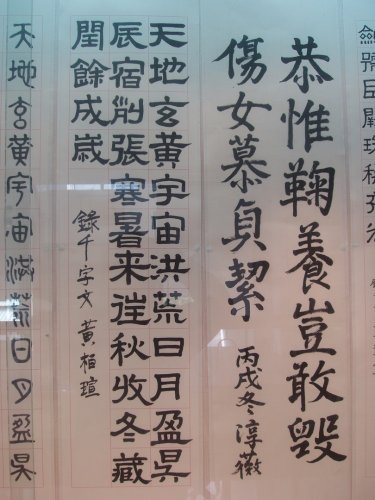 劍號巨闕珠稱夜光
恭惟鞠養豈敢毀
傷女慕貞絜
丙戌冬淳薇
天地玄黃宇宙洪荒日月盈昃
辰宿列張寒暑来往秋收冬藏
閏餘成歲
錄千字文 黃柏瑄
天地玄黃宇宙洪荒日月盈昃